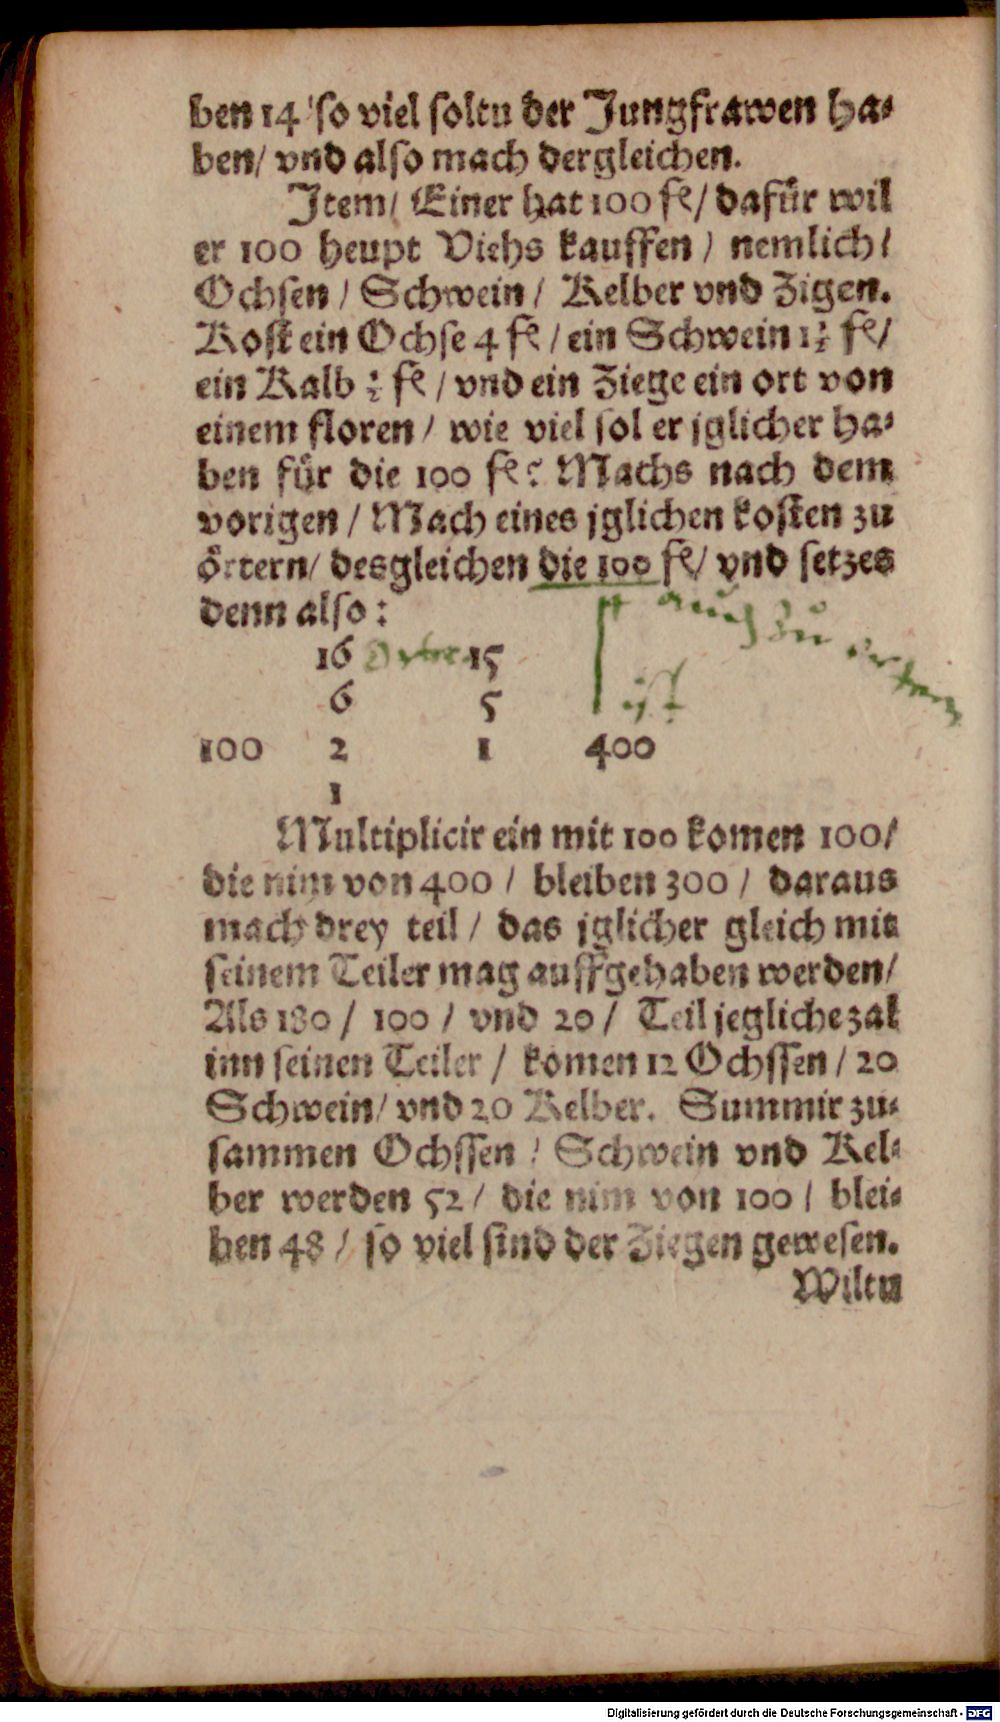 ben 14 / so viel soltu der Jungfrawen ha⸗
ben / vnd also mach dergleichen.
Item / Einer hat 100 fl / dafür wil
er 100 heupt Viehs kauffen / nemlich /
Ochsen / Schwein / Kelber vnd Zigen.
Kost ein Ochse 4 fl / ein Schwein 1½ fl /
ein Kalb ½ fl / vnd ein Ziege ein ort von
einem floren / wie viel sol er jglicher ha⸗
ben für die 100 fl? Machs nach dem
vorigen / Mach eines jglichen kosten zu
örtern / desgleichen die 100 fl / vnd setzes
denn also:
auch zu örtern
16 Örter 15
ist
6 5
100 2 1 400
1
Multiplicir ein mit 100 komen 100 /
die nim von 400 / bleiben 300 / daraus
mach drey teil / das jglicher gleich mit
seinem Teiler mag auffgehaben werden /
Als 180 / 100 / vnd 20 / Teil jegliche zal
inn seinen Teiler / komen 12 Ochssen / 20
Schwein / vnd 20 Kelber. Summir zu⸗
sammen Ochssen / Schwein vnd Kel⸗
ber werden 52 / die nim von 100 / blei⸗
ben 48 / so viel sind der Ziegen gewesen.
Wiltu
Digitalisierung gefördert durch die Deutsche Forschungsgemeinschaft - DFG